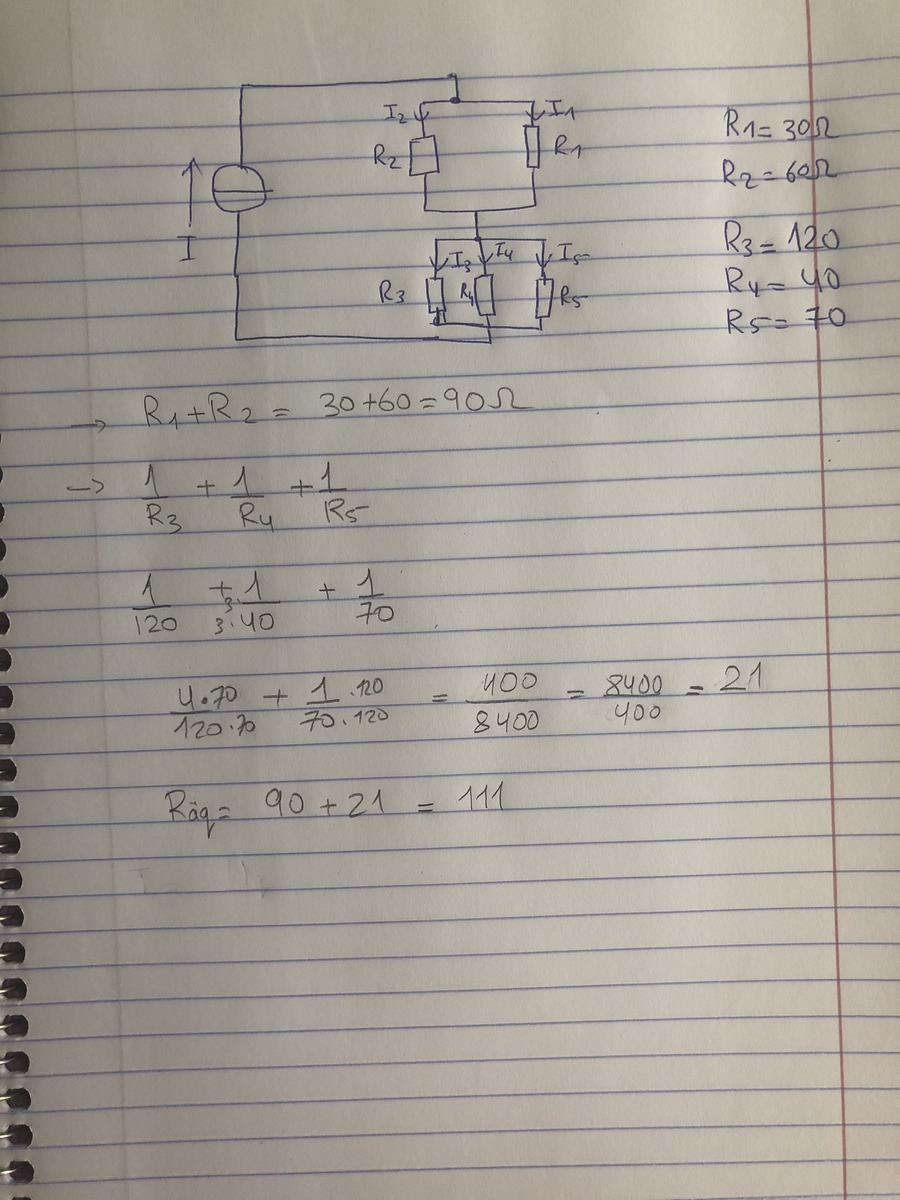 I2 I1
R2 R1
I
I3 I4 I5
R3 R4 R5
R1 = 30Ω
R2 = 60Ω
R3 = 120
R4 = 40
R5 = 70
→ R1 + R2 = 30 + 60 = 90Ω
→ 1/R3 + 1/R4 + 1/R5
1/120 + 3·1/3·40 + 1/70
4·70/120·70 + 1·120/70·120 = 400/8400 = 8400/400 = 21
Räq = 90 + 21 = 111